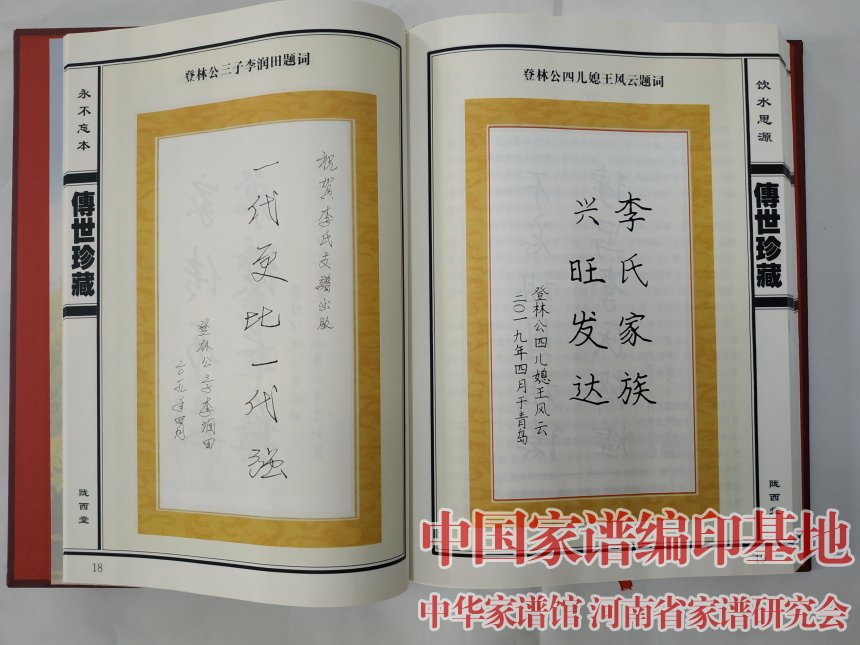 登林公三子李润田题词
永不忘本
傳世珍藏
陇西堂
祝贺李氏支谱出版
一代更比一代强
登林公三子李润田
二〇一九年四月
18
登林公四儿媳王风云题词
饮水思源
傳世珍藏
陇西
李氏家族
兴旺发达
登林公四儿媳王风云
二〇一九年四月于青岛
中国家谱编印基地
中华家谱馆 河南省家谱研究会